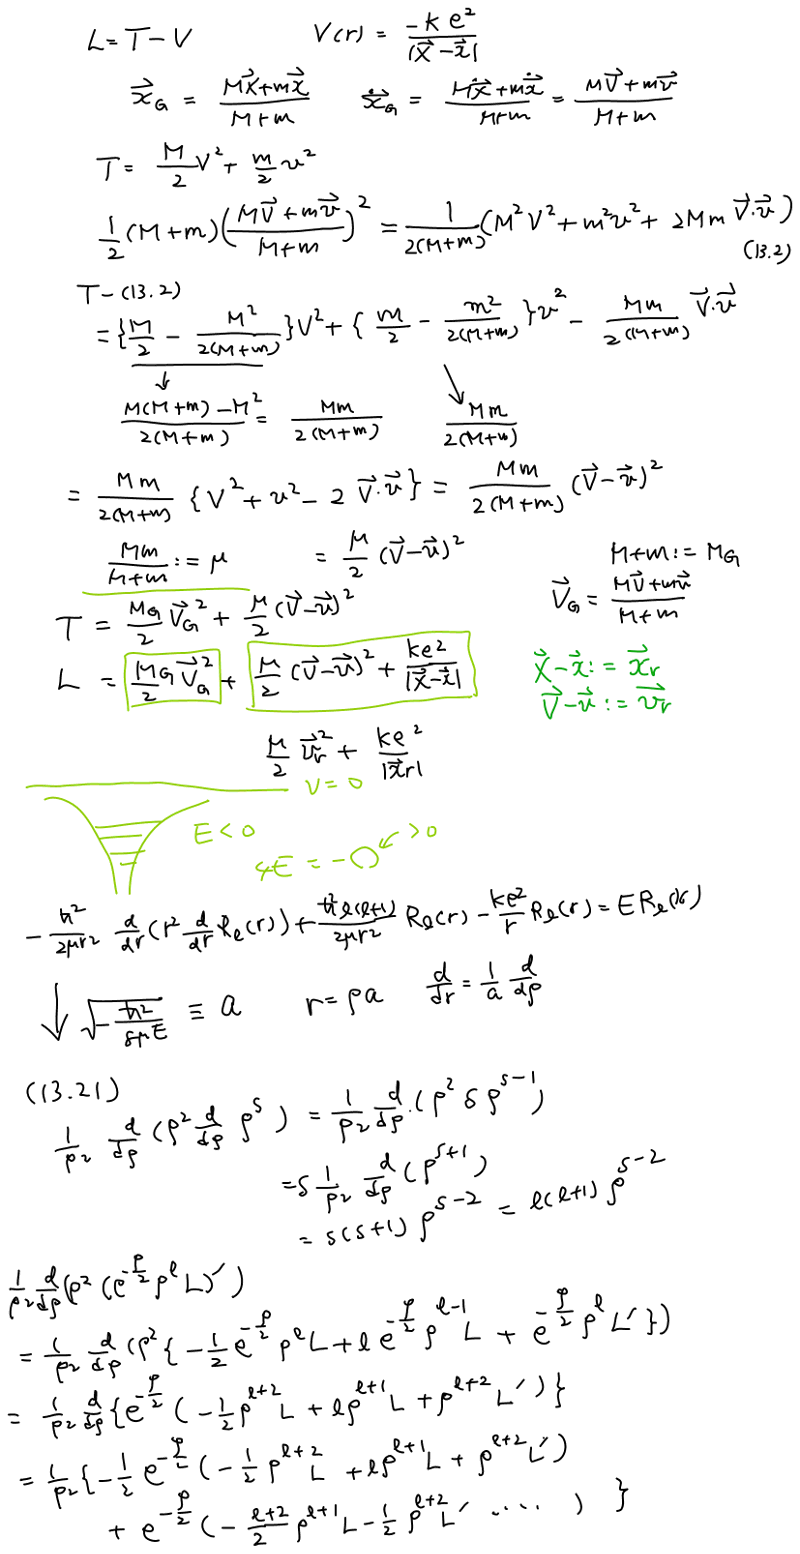 L = T − V    V(r) = −k e² / |X⃗ − x⃗|
x⃗_G = (MX⃗ + mx⃗) / (M+m)    ẋ⃗_G = (MẊ⃗ + mẋ⃗) / (M+m) = (MV⃗ + mv⃗) / (M+m)
T = M/2 V² + m/2 v²
1/2 (M+m) ((MV⃗ + mv⃗) / (M+m))² = 1/(2(M+m)) (M²V² + m²v² + 2Mm V⃗·v⃗)
(13.2)
T − (13.2)
= {M/2 − M²/(2(M+m))} V² + {m/2 − m²/(2(M+m))} v² − Mm/(2(M+m)) V⃗·v⃗
↓ ↘
(M(M+m) − M²) / (2(M+m)) = Mm / (2(M+m))    Mm / (2(M+m))
= Mm/(2(M+m)) {V² + v² − 2 V⃗·v⃗} = Mm/(2(M+m)) (V⃗ − v⃗)²
Mm/(M+m) := μ    = μ/2 (V⃗ − v⃗)²    M+m := M_G
T = M_G/2 V⃗_G² + μ/2 (V⃗ − v⃗)²    V⃗_G = (MV⃗ + mv⃗) / (M+m)
L = M_G/2 V⃗_G² + μ/2 (V⃗ − v⃗)² + ke² / |X⃗ − x⃗|    X⃗ − x⃗ := x⃗_r
V⃗ − v⃗ := v⃗_r
μ/2 v⃗_r² + ke² / |x⃗_r|
V = 0
E < 0    > 0
4E = −○
− ħ²/(2μr²) d/dr (r² d/dr R_ℓ(r)) + ħ²ℓ(ℓ+1)/(2μr²) R_ℓ(r) − ke²/r R_ℓ(r) = E R_ℓ(r)
↓ √(−ħ²/(8μE)) ≡ a    r = ρa    d/dr = 1/a d/dρ
(13.21)
1/ρ² d/dρ (ρ² d/dρ ρ^s) = 1/ρ² d/dρ · (ρ² s ρ^(s−1))
= s 1/ρ² d/dρ (ρ^(s+1))
= s(s+1) ρ^(s−2) = ℓ(ℓ+1) ρ^(s−2)
1/ρ² d/dρ (ρ² (e^(−ρ/2) ρ^ℓ L)′)
= 1/ρ² d/dρ (ρ² {−1/2 e^(−ρ/2) ρ^ℓ L + ℓ e^(−ρ/2) ρ^(ℓ−1) L + e^(−ρ/2) ρ^ℓ L′})
= 1/ρ² d/dρ {e^(−ρ/2) (−1/2 ρ^(ℓ+2) L + ℓρ^(ℓ+1) L + ρ^(ℓ+2) L′)}
= 1/ρ² {−1/2 e^(−ρ/2) (−1/2 ρ^(ℓ+2) L + ℓρ^(ℓ+1) L + ρ^(ℓ+2) L′)
+ e^(−ρ/2) (−(ℓ+2)/2 ρ^(ℓ+1) L − 1/2 ρ^(ℓ+2) L′ ····· ) }